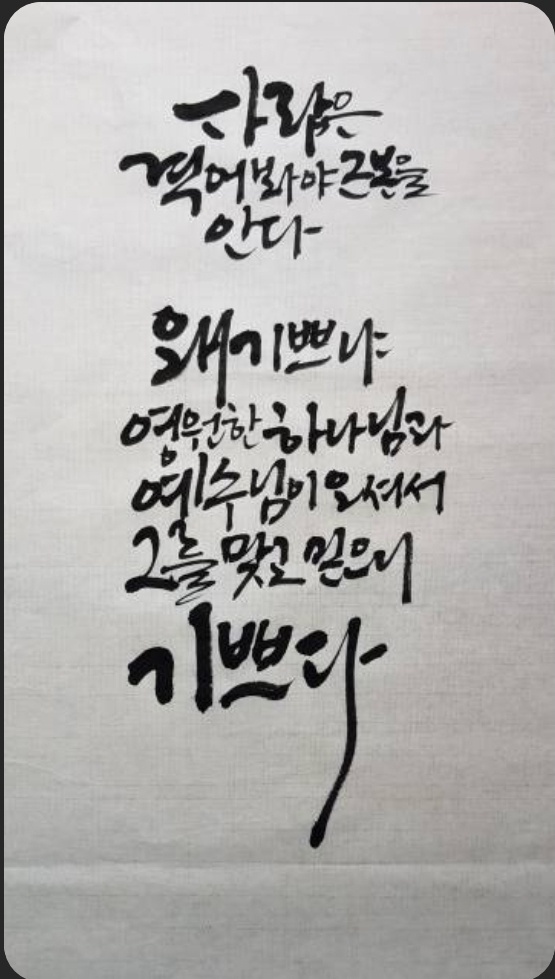 사람은
겪어봐야 근본을
안다
왜 기쁘냐
영원한 하나님과
예수님이 오셔서
그를 맞고 믿으니
기쁘다